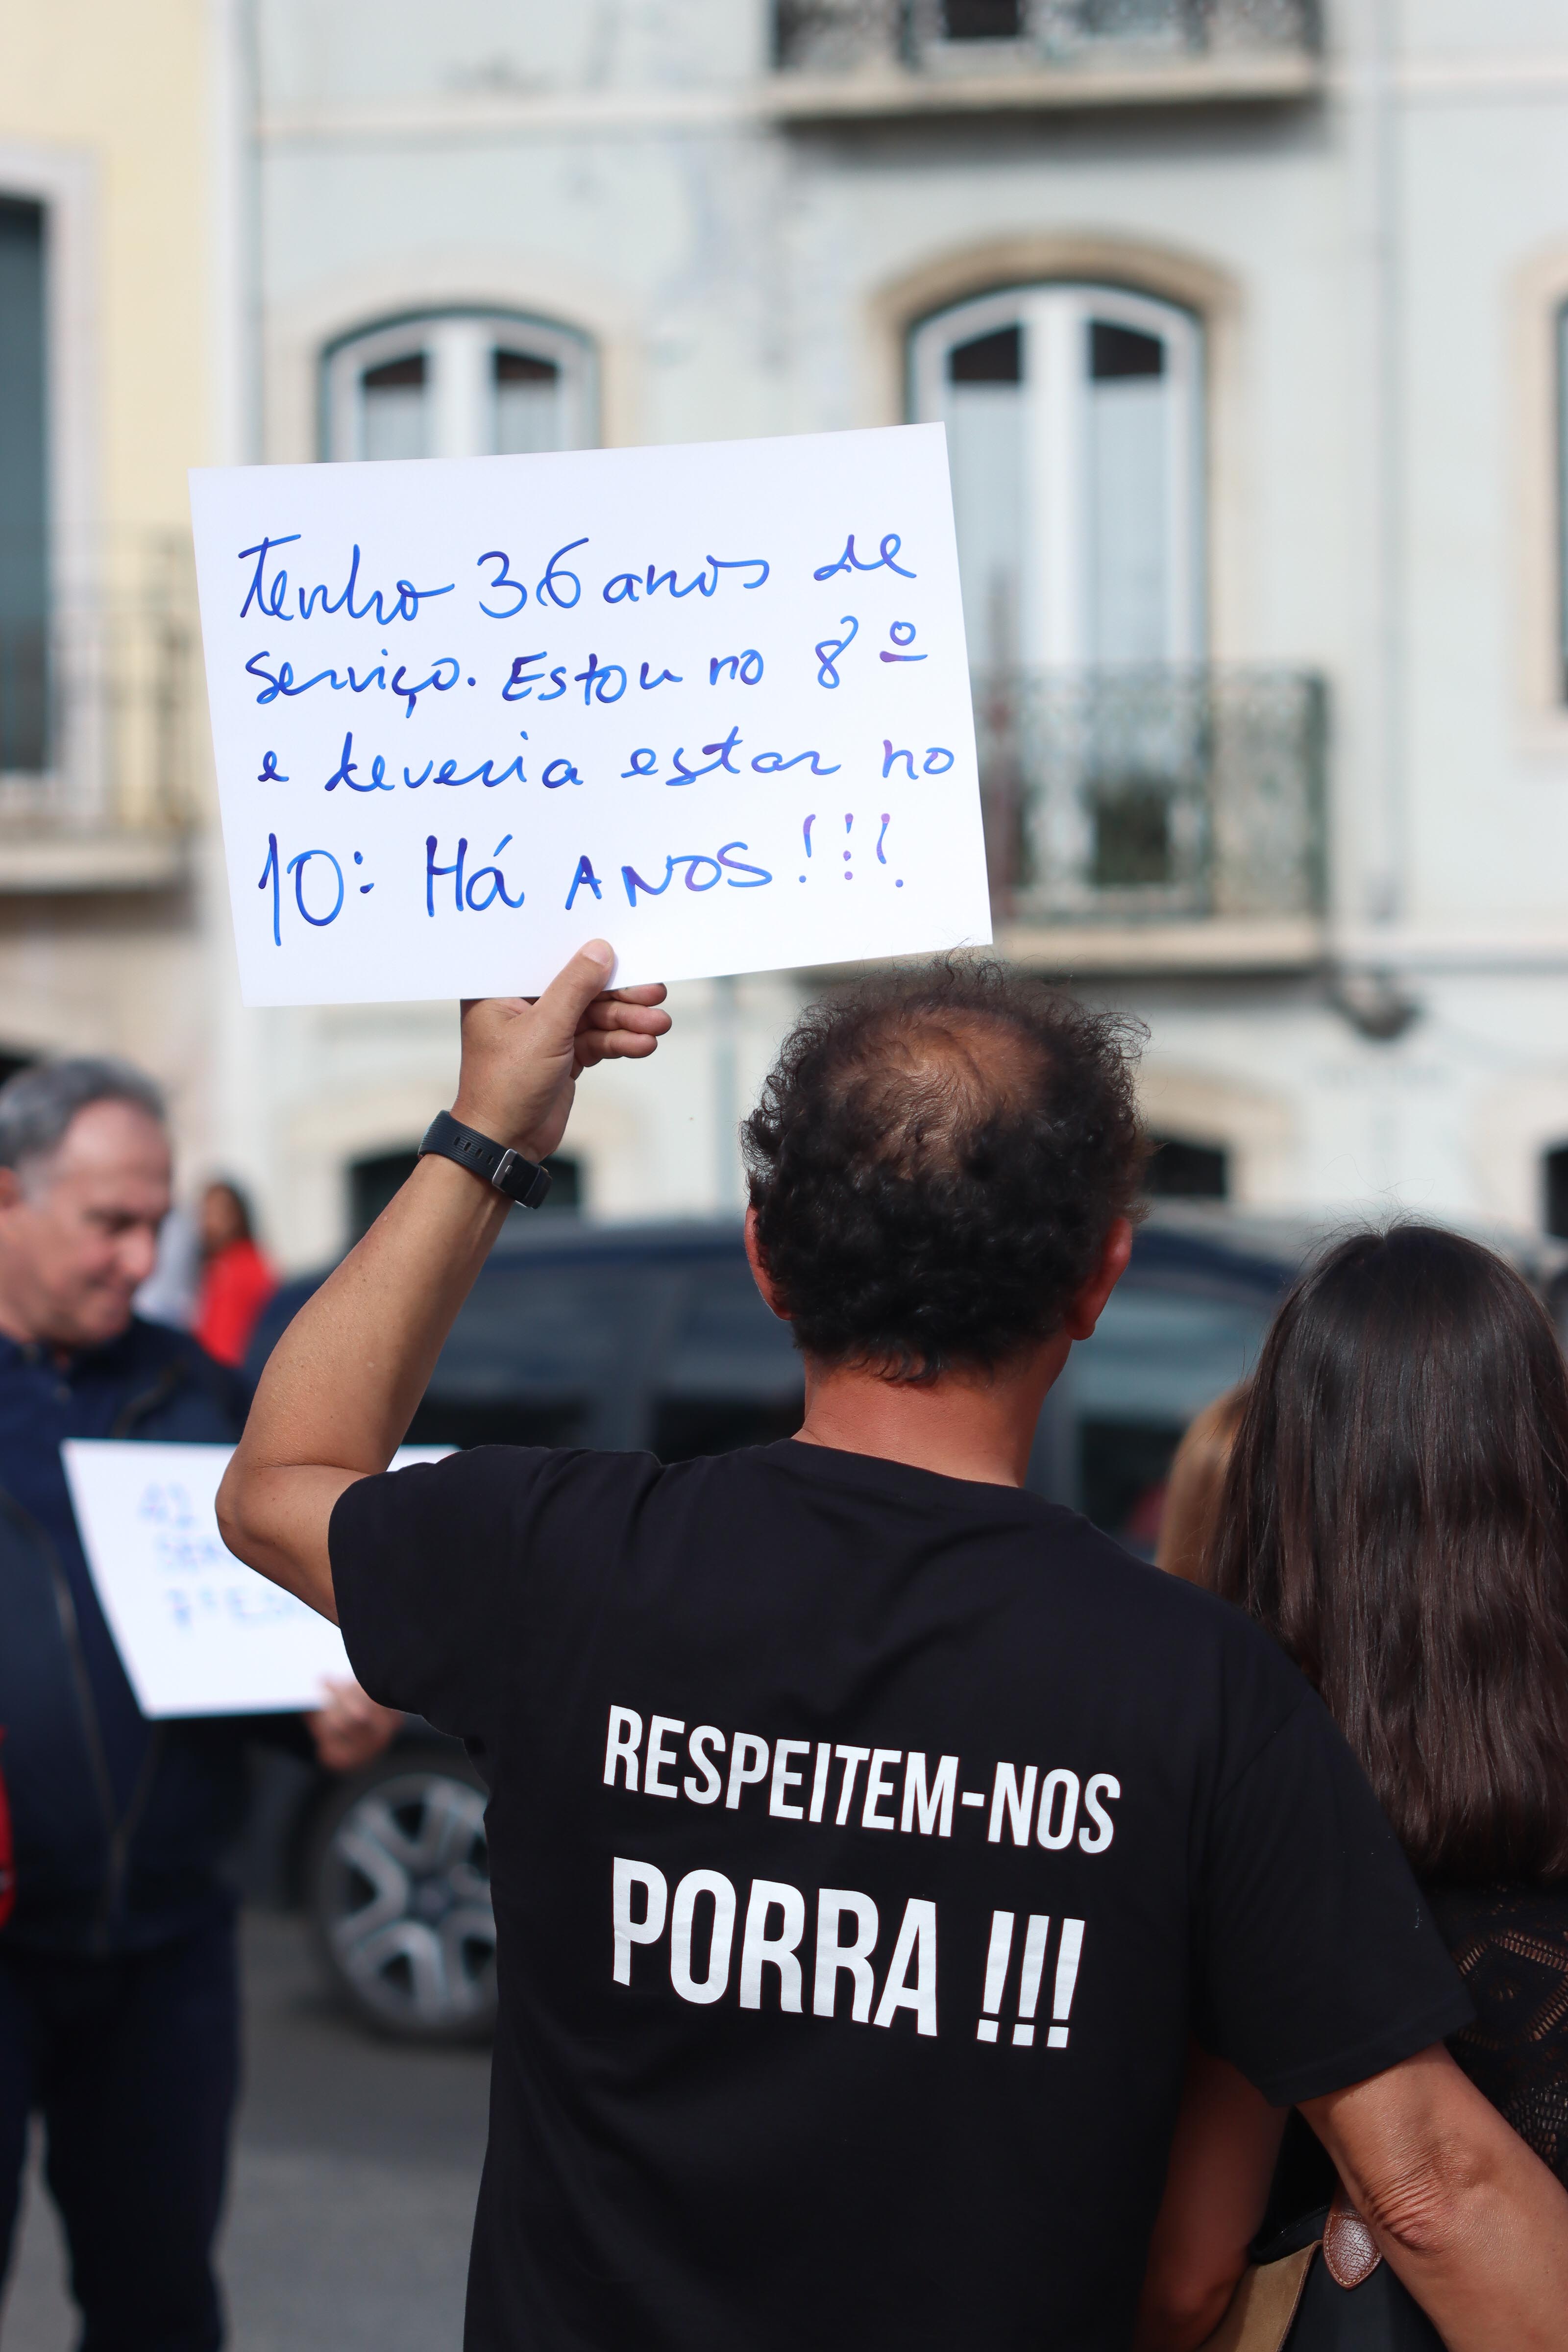 Tenho 36 anos de
serviço. Estou no 8º
e deveria estar no
10: Há ANOS!!!
RESPEITEM-NOS
PORRA !!!